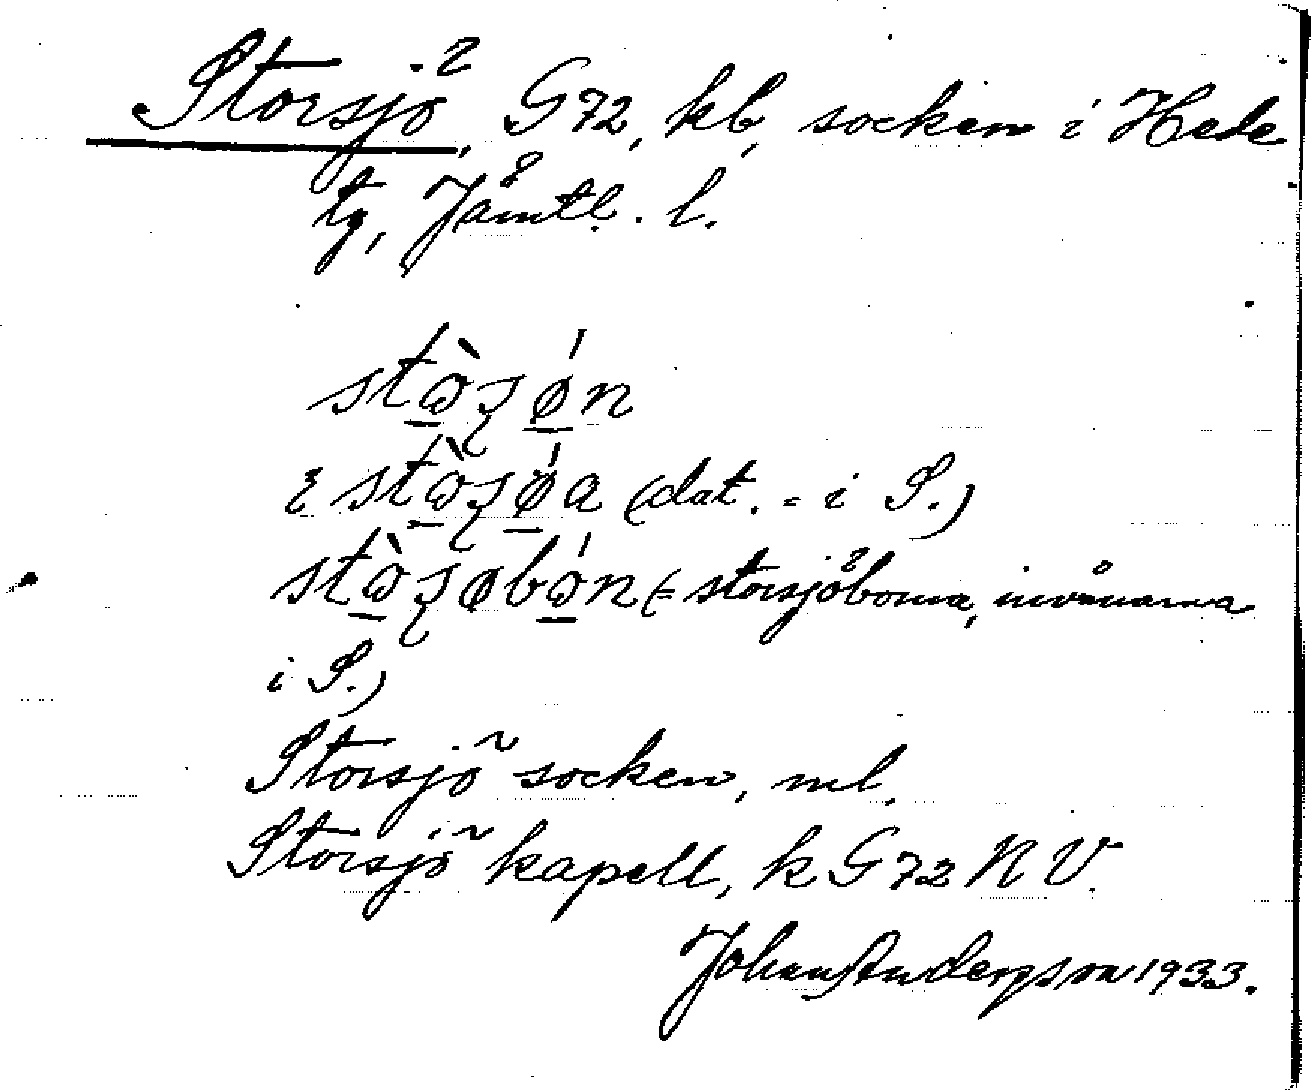 Storsjö, G72, kb, socken i Hede
tg, Jämtl. l.
stòʂǿn
ɪ stòʂǿa (dat. = i S.)
stòʂøbón (= storsjöborna, invånarna
i S.)
Storsjö socken, ml.
Storsjö kapell, k G72 NV.
Johan Anderson 1933.